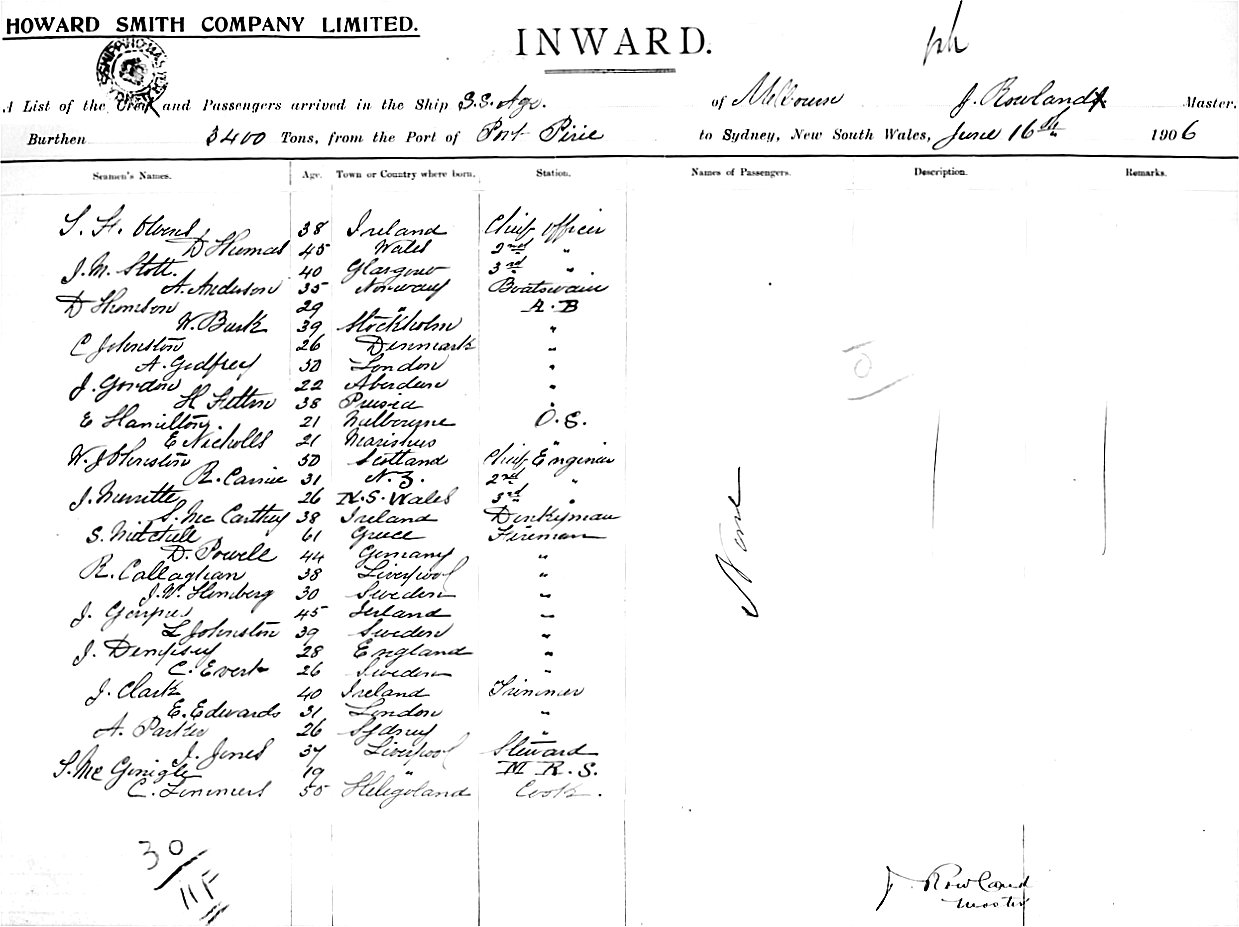 HOWARD SMITH COMPANY LIMITED.
INWARD.
A List of the Crew and Passengers arrived in the Ship S.S. Age. of Melbourne J. Rowland Master.
Burthen 3400 Tons, from the Port of Port Pirie to Sydney, New South Wales, June 16th 1906
Seamen's Names. Age. Town or Country where born. Station. Names of Passengers. Description. Remarks.
38 Ireland Chief Officer
D Thomas 45 Wales 2nd "
J. M. Stott. 40 Glasgow 3rd "
A. Anderson 35 Norway Boatswain
D Thomson 29 " A.B
W. Burk 39 Stockholm "
C Johnston 26 Denmark "
A. Godfrey 30 London "
J. Gordon 22 Aberdeen "
H 38 "
E Hamilton. 21 Melbourne O.S.
E Nicholls 21 Marishus "
W. Johnston 50 Scotland Chief Engineer
R. Carrie 31 N.Z. 2nd "
J. 26 N.S. Wales 3rd "
S. Mc Carthey 38 Ireland Donkeyman
S. Mitchell 61 Greece Fireman
D. Powell 44 Germany "
R. Callaghan 38 Liverpool "
J. W. 30 Sweden "
J. 45 Ireland "
L Johnston 39 Sweden "
J. Dempsey 28 England "
C. Evert 26 Sweden "
J. Clark 40 Ireland Trimmer
E. Edwards 31 London "
A. Parker 26 Sydney "
J. Jones 37 Liverpool Steward
S. Mc Ginigle 19 " M R.S.
C. 50 Heligoland Cook.
None
30/11F
J. Rowland
Master